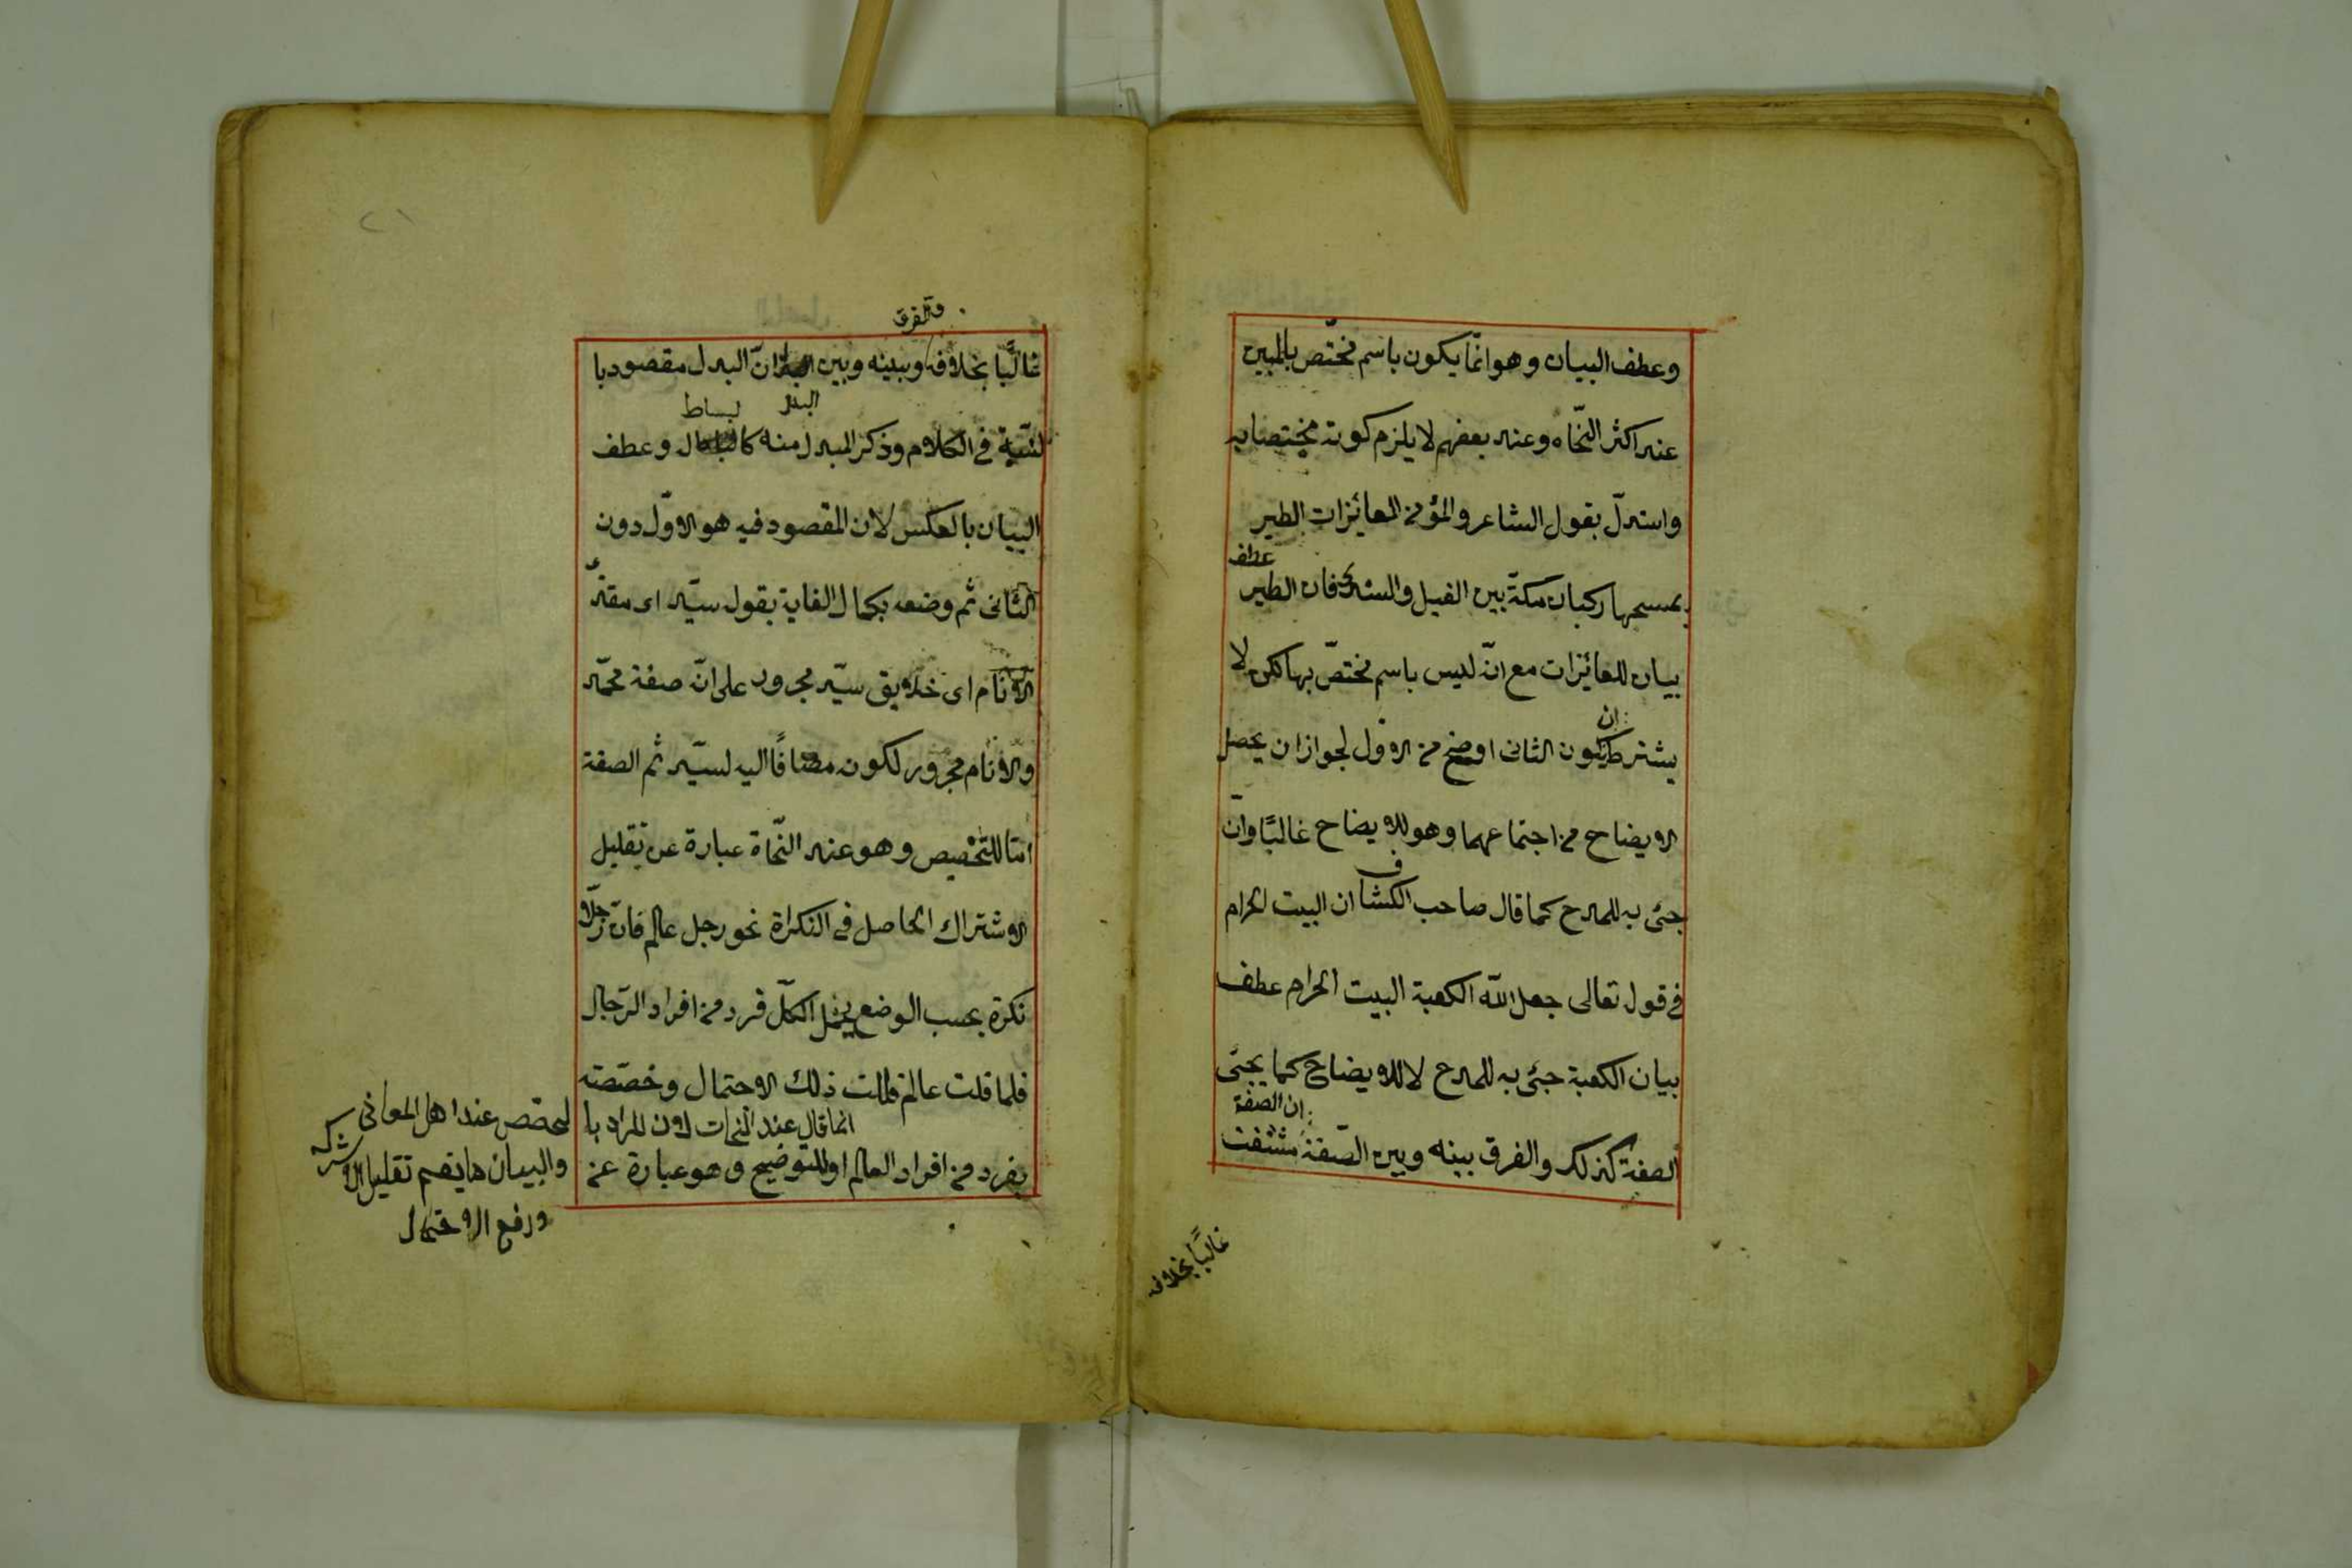 وعطف البيان وهو انمّا يكون باسم مختّص بالمبين
عند اكثر النحّاه وعند بعضهم لا يلزم كونه مختصا به
واستدلّ بقول الشاعر والمؤمن العائزات الطير
يمسحها ركبان مكّة بين الغيل والسند فان الطير
عطف
بيان للعائزات مع انّه ليس باسم مختصّ بها لكن لا
ان
يشترط يكون الثانى اوضح من الاوّل لجواز ان يحصل
الايضاح من اجتماعهما وهو للايضاح غالبًا وانّه
جئ به للمدح كما قال صاحب الكشاف ان البيت الحرام
فى قول تعالى جعل اللّه الكعبة البيت الحرام عطف
بيان الكعبة جئ به للمدح لا للايضاح كما يجئ
ان الصفة
الصفة كذلك والفرق بينه وبين الصّفة مشتقت
غالبًا بخلافه
٢١
والفرق
غالبًا بخلافه وبينه وبين انّ البدل مقصود با
البدل
لبساط
لنسبة فى الكلام وذكر المبدل منه وعطف
البيان بالعكس لان المقصود فيه هو الاوّل دون
الثانى ثم وضعه بكمال الغاية بقول سيّد اى مقتد
الانام اى خلايق سيّد مجرور على انّه صفة محمّد
والانام مجرور لكونه مضافًا اليه لسيّد ثم الصفة
امّا للتخصيص وهو عند النحّاة عبارة عن تقليل
الاشتراك الحاصل فى النكراة نحو رجل عالم فانّ رجلا
نكرة بحسب الوضع الكلّ فرد من افراد الرّجال
فلما قلت عالم قللت ذلك الاحتمال وخصّصته
انما قال عند النحات لان المراد با
بفرد من افراد العالم او للتوضيح وهو عبارة عن
لمخصّص عند اهل المعانى
والبيان ما يعم تقليل الاشتراك
ورفع الاحتمال